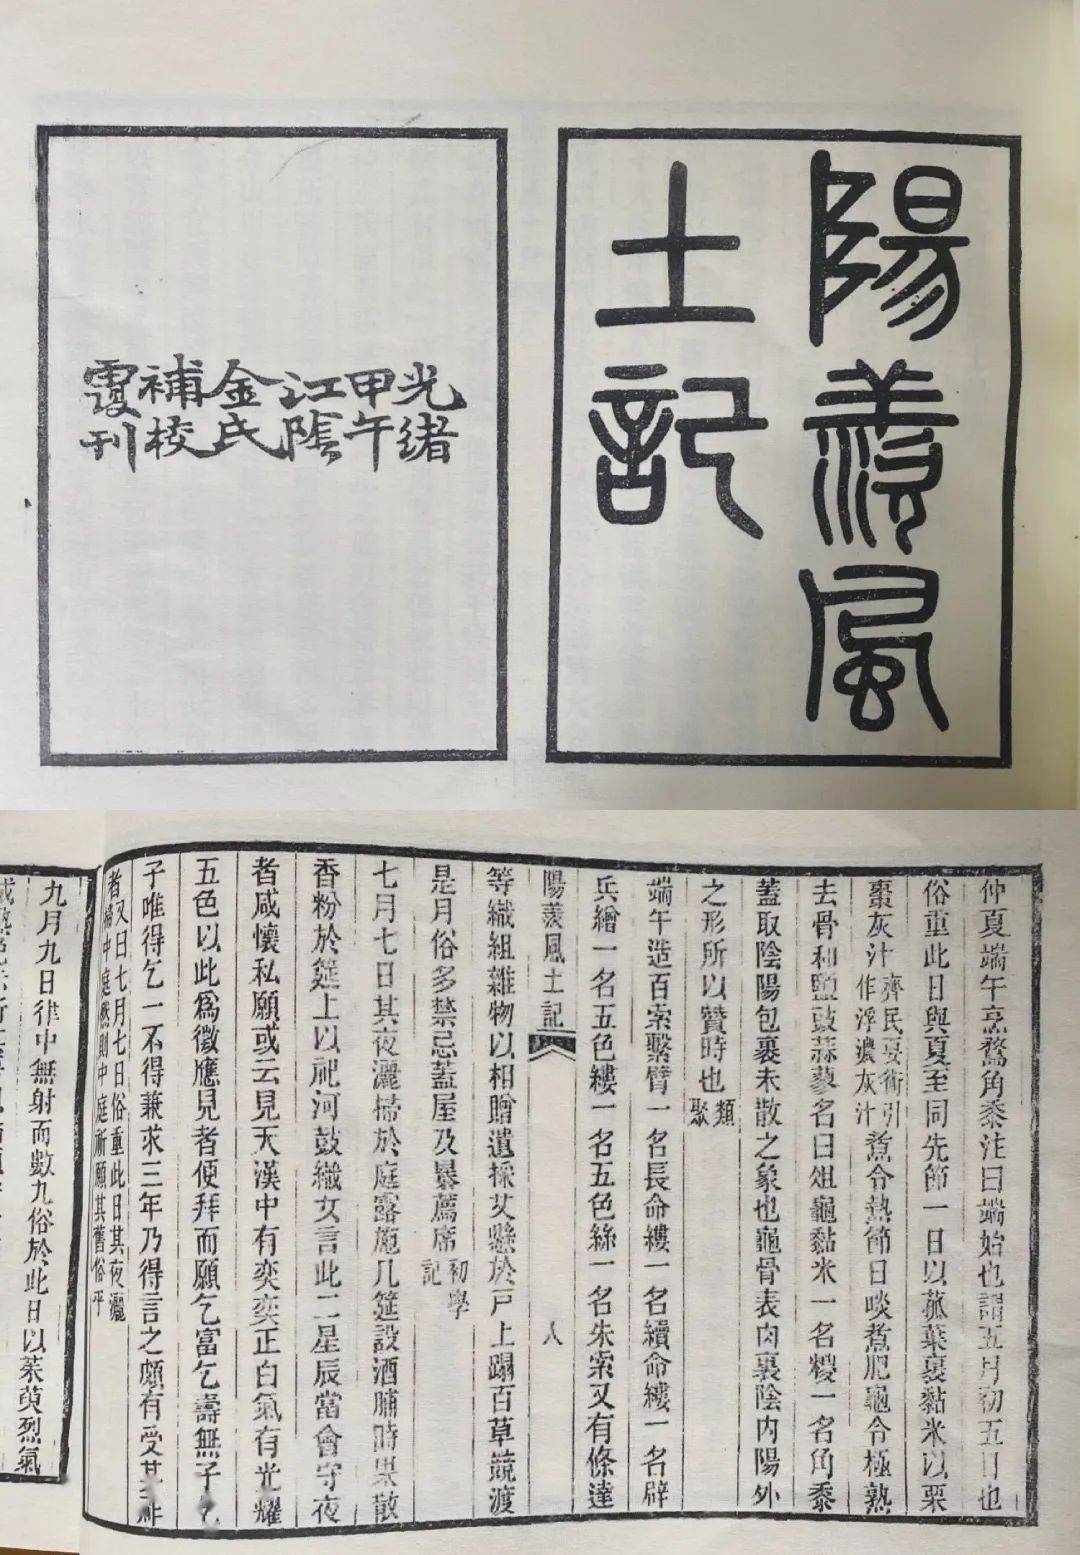 陽羨風
土記
光緒
甲午
江陰
金氏
補校
覆刊
仲夏端午烹鶩角黍注曰端始也謂五月初五日也
俗重此日與夏至同先節一日以菰葉裹黏米以栗
棗灰汁齊民要術引作浮濃灰汁煮令熟節日啖煮肥龜令極熟
去骨和鹽豉蒜蓼名曰俎龜黏米一名糉一名角黍
蓋取陰陽包裹未散之象也龜骨表肉裏陰內陽外
之形所以贊時也類聚
端午造百索繫臂一名長命縷一名續命縷一名辟
兵繒一名五色縷一名五色絲一名朱索又有條達
陽羨風土記 八
等織組雜物以相贈遺採艾懸於戸上蹋百草競渡
是月俗多禁忌蓋屋及暴薦席初學記
七月七日其夜灑掃於庭露施几筵設酒脯時果散
香粉於筵上以祀河鼓織女言此二星辰當會守夜
者咸懷私願或云見天漢中有奕奕正白氣有光耀
五色以此爲徵應見者便拜而願乞富乞壽無子乞
子唯得乞一不得兼求三年乃得言之頗有受其祚
者又曰七月七日俗重此日其夜灑掃中庭然則中庭祈願其舊俗乎
九月九日律中無射而數九俗於此日以茱萸烈氣